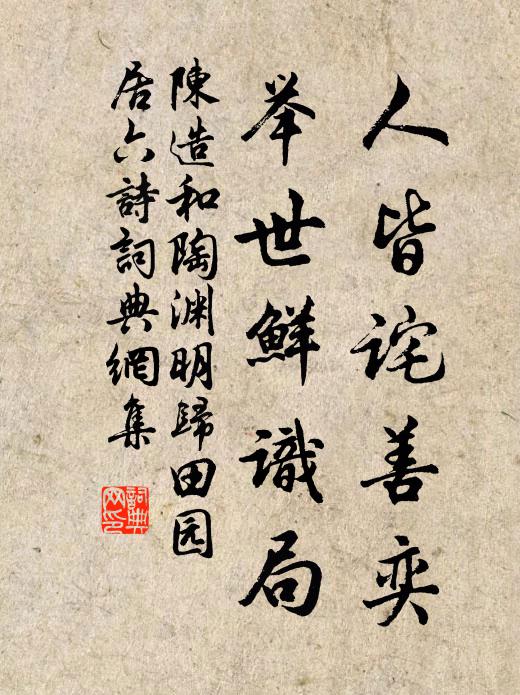 人皆诧善奕
举世鮮識局
陳造和陶渊明歸田园
居六詩詞典網集
詞典
网印